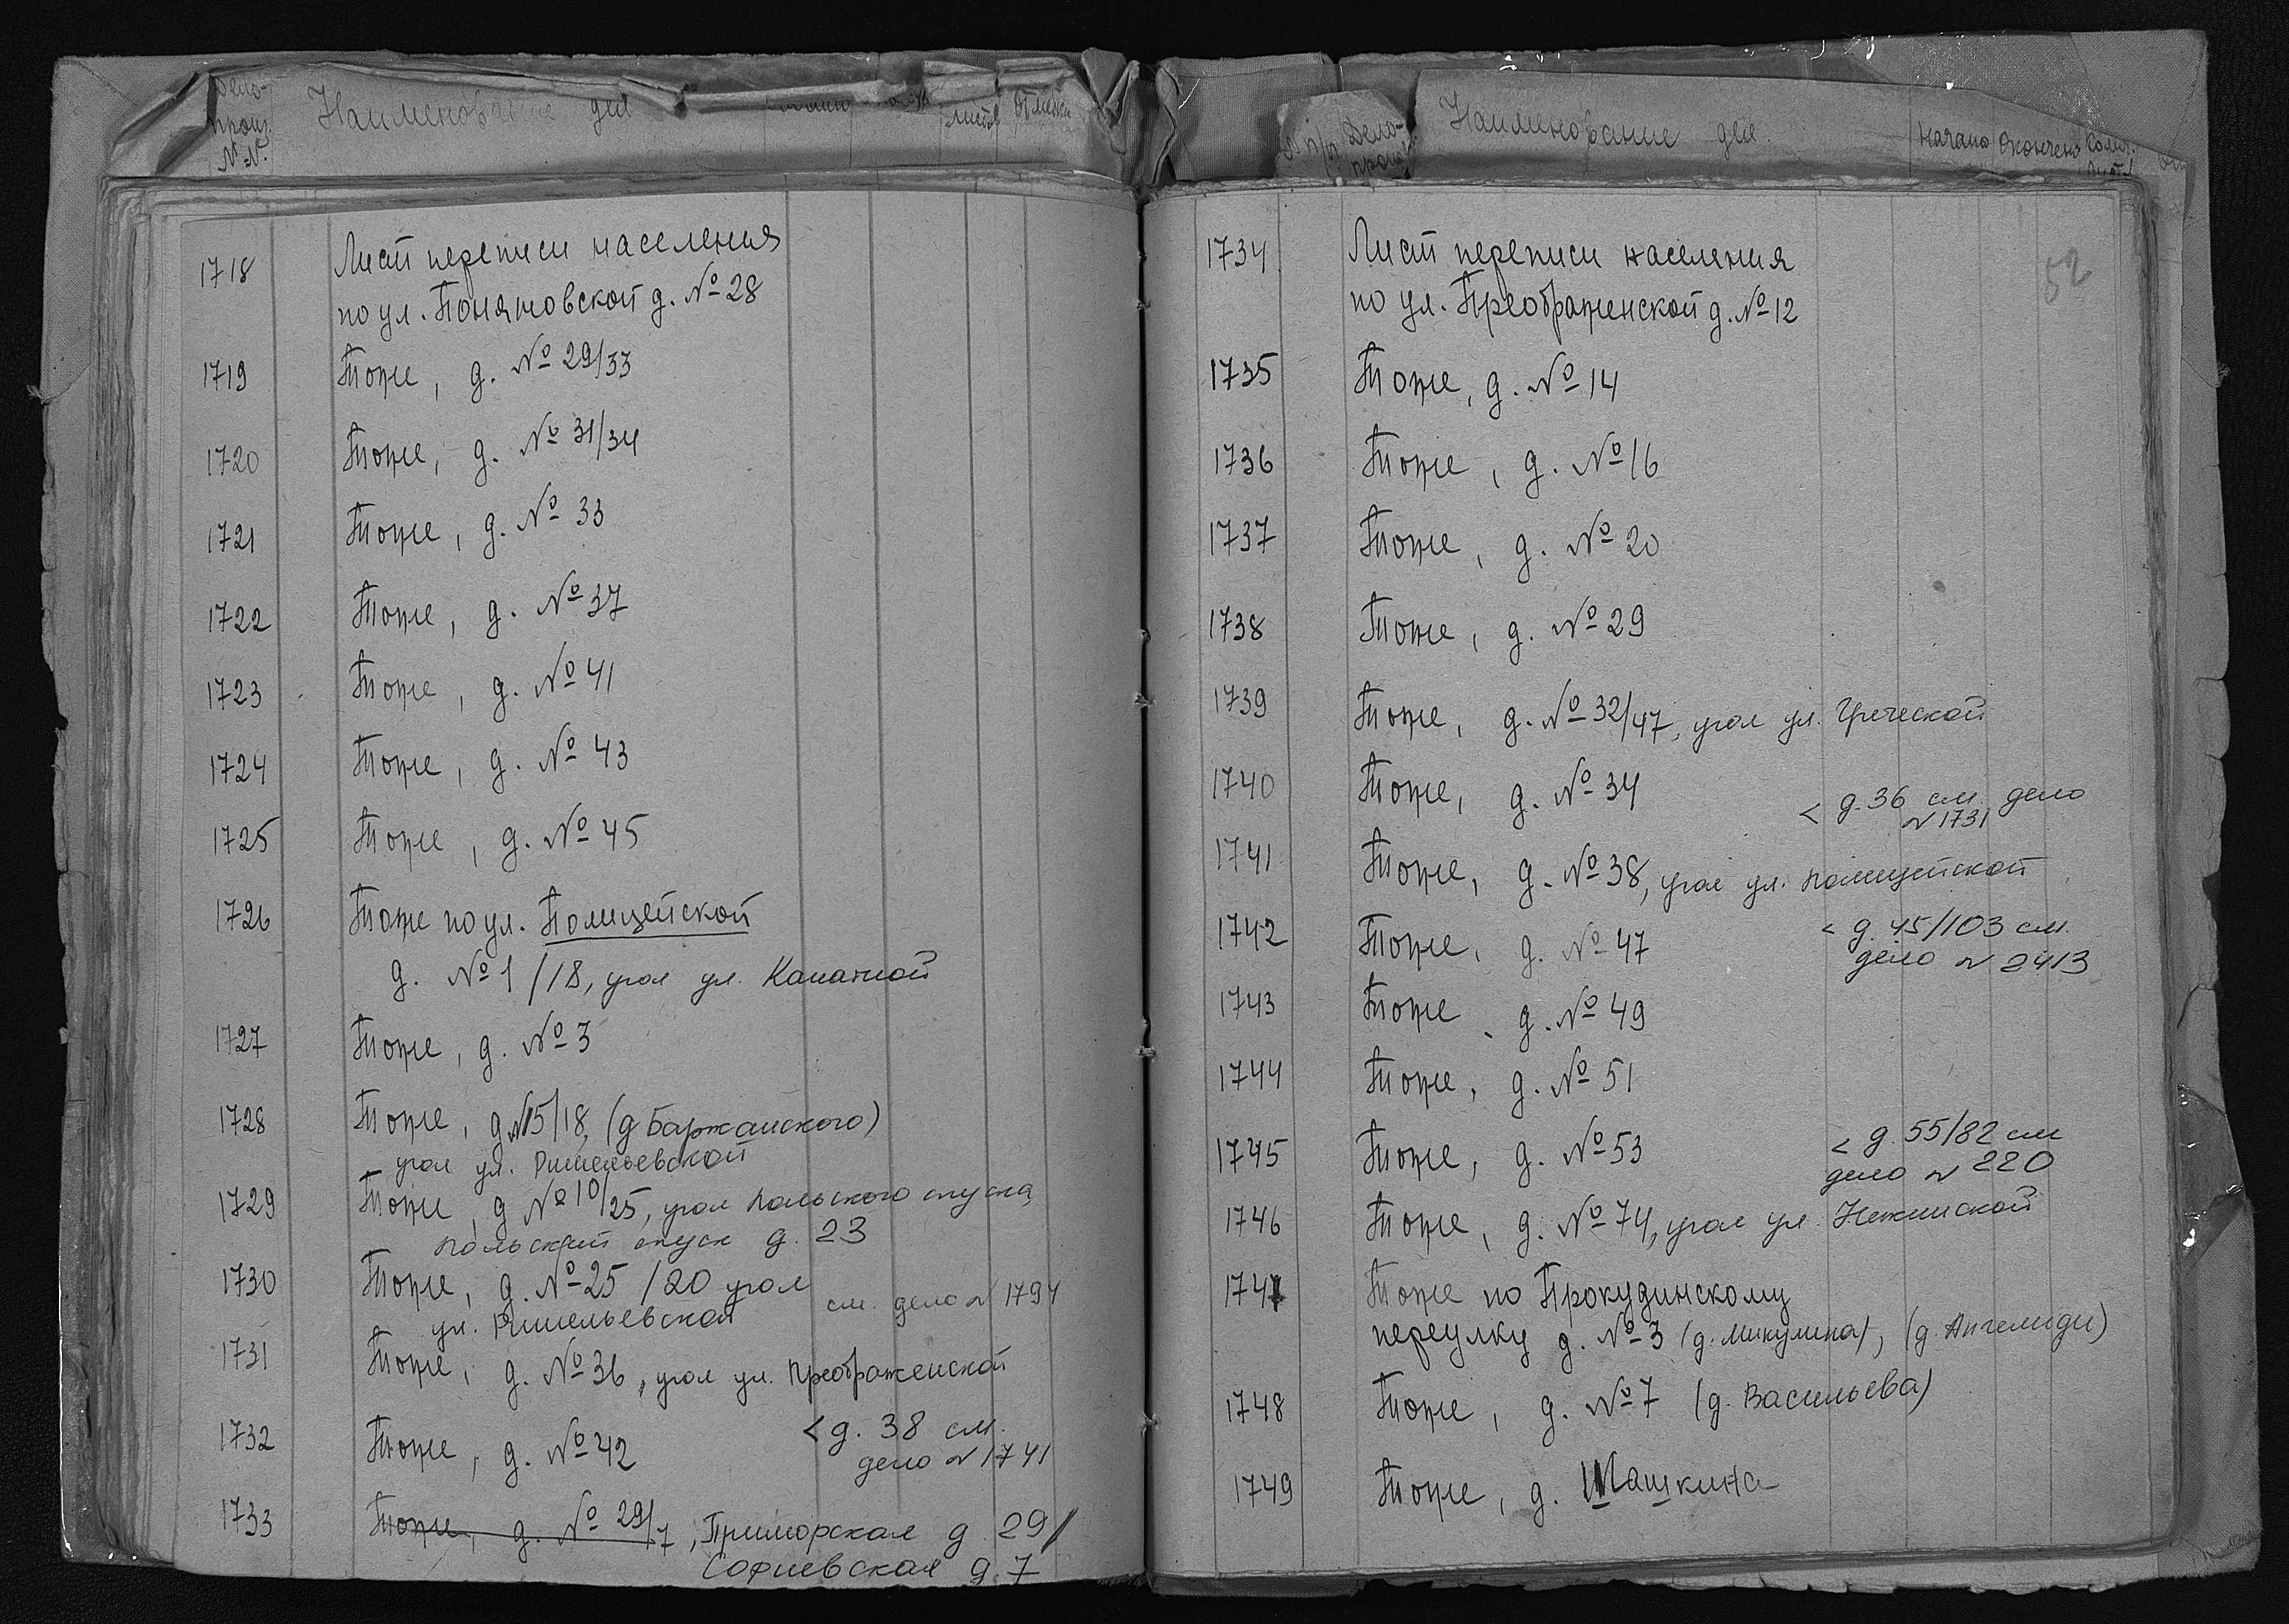 Дело-
произ.
№№.
Наименование дел
листов
Отметки
1718 Лист переписи населения
по ул. Поняшовской д. № 28
1719 Тоже, д. № 29/33
1720 Тоже, д. № 31/34
1721 Тоже, д. № 33
1722 Тоже, д. № 37
1723 Тоже, д. № 41
1724 Тоже, д. № 43
1725 Тоже, д. № 45
1726 Тоже по ул. Полицейской
д. № 1/18, угол ул. Канатной
1727 Тоже, д. № 3
1728 Тоже, д №15/18, (д Баржанского)
угол ул. Ришельевской
1729 Тоже, д № 10/25, угол Польского спуска
Польский спуск д. 23
1730 Тоже, д. № 25 /20 угол
ул. Ришельевской см. дело № 1794
1731 Тоже, д. № 36, угол ул. Преображенской
1732 Тоже, д. № 42 < д. 38 см.
дело № 1741
1733 Тоже, д. № 29/7, Приморская д. 29/
Софиевская д. 7
№ п/п
Дело-
произ.
Наименование дел.
Начато
Окончено
Колич.
лист.
52
1734 Лист переписи населения
по ул. Преображенской д. № 12
1735 Тоже, д. № 14
1736 Тоже, д. № 16
1737 Тоже, д. № 20
1738 Тоже, д. № 29
1739 Тоже, д. № 32/47, угол ул. Греческой
1740 Тоже, д. № 34 < д. 36 см. дело
№ 1731
1741 Тоже, д. № 38, угол ул. Полицейской
1742 Тоже, д. № 47 < д. 45/103 см.
дело № 2413
1743 Тоже, д. № 49
1744 Тоже, д. № 51
1745 Тоже, д. № 53 < д. 55/82 см
дело № 220
1746 Тоже, д. № 74, угол ул. Нежинской
1747 Тоже по Прокудинскому
переулку д. № 3 (д. Микулина), (д. Ангелиди)
1748 Тоже, д. № 7 (д. Васильева)
1749 Тоже, д. Шашкина